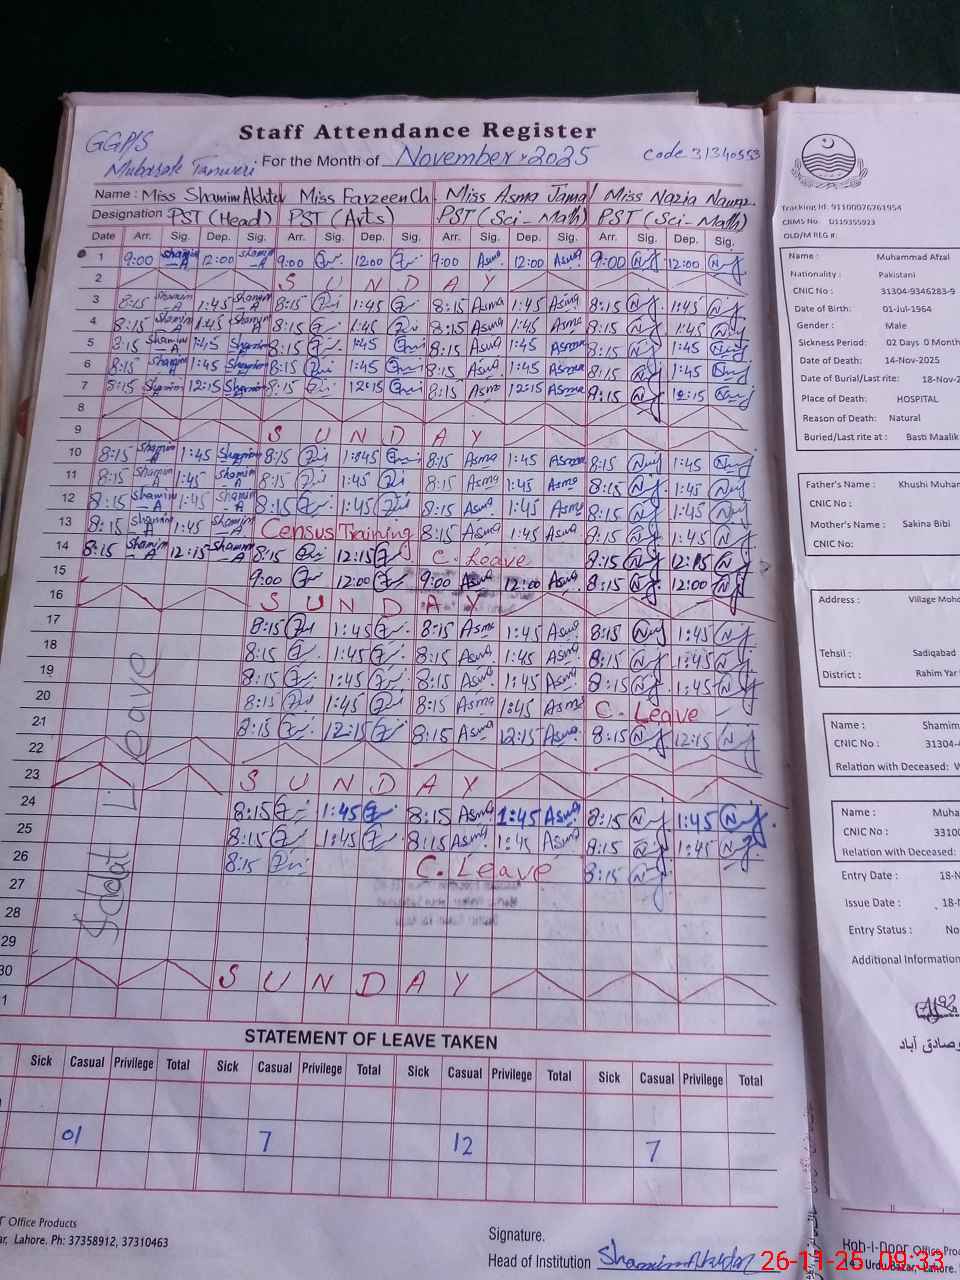 GGP/S
Mubarak Tanweri
Staff Attendance Register
For the Month of November-2025
Code 31340553
Name: Miss Shamim Akhter Miss Farzeen Ch. Miss Asma Jamal Miss Nazia Nawaz
Designation PST (Head) PST (Arts) PST (Sci-Math) PST (Sci-Math)
Date Arr. Sig. Dep. Sig. Arr. Sig. Dep. Sig. Arr. Sig. Dep. Sig. Arr. Sig. Dep. Sig.
1 9:00 Shamim A 12:00 Shamim A 9:00 12:00 9:00 Asma 12:00 Asma 9:00 12:00
2 SUNDAY
3 8:15 Shamim A 1:45 Shamim A 8:15 1:45 8:15 Asma 1:45 Asma 8:15 1:45
4 8:15 Shamim A 1:45 Shamim A 8:15 1:45 8:15 Asma 1:45 Asma 8:15 1:45
5 8:15 Shamim A 1:45 Shamim 8:15 1:45 8:15 Asma 1:45 Asma 8:15 1:45
6 8:15 Shamim A 1:45 Shamim 8:15 1:45 8:15 Asma 1:45 Asma 8:15 1:45
7 8:15 Shamim 12:15 Shamim 8:15 12:15 8:15 Asma 12:15 Asma 8:15 12:15
8
9 SUNDAY
10 8:15 Shamim A 1:45 Shamim 8:15 1:45 8:15 Asma 1:45 Asma 8:15 1:45
11 8:15 Shamim A 1:45 Shamim A 8:15 1:45 8:15 Asma 1:45 Asma 8:15 1:45
12 8:15 Shamim A 1:45 Shamim A 8:15 1:45 8:15 Asma 1:45 Asma 8:15 1:45
13 8:15 Shamim A 1:45 Shamim A Census Training 8:15 Asma 1:45 Asma 8:15 1:45
14 8:15 Shamim A 12:15 Shamim A 8:15 12:15 C. Leave 8:15 12:15
15 9:00 12:00 9:00 Asma 12:00 Asma 8:15 12:00
16 SUNDAY
17 8:15 1:45 8:15 Asma 1:45 Asma 8:15 1:45
18 8:15 1:45 8:15 Asma 1:45 Asma 8:15 1:45
19 8:15 1:45 8:15 Asma 1:45 Asma 8:15 1:45
20 8:15 1:45 8:15 Asma 1:45 Asma C. Leave
21 8:15 12:15 8:15 Asma 12:15 Asma 8:15 12:15
22
23 SUNDAY
24 8:15 1:45 8:15 Asma 1:45 Asma 8:15 1:45
25 8:15 1:45 8:15 Asma 1:45 Asma 8:15 1:45
26 8:15 C. Leave 8:15
27
28
29
30 SUNDAY
1
Iddat Leave
STATEMENT OF LEAVE TAKEN
Sick Casual Privilege Total Sick Casual Privilege Total Sick Casual Privilege Total Sick Casual Privilege Total
01 7 12 7
Office Products
Lahore. Ph: 37358912, 37310463
Signature.
Head of Institution Shamim Akhtar
Tracking Id: 91100076761954
CRMS No. D119355923
OLD/M REG #:
Name : Muhammad Afzal
Nationality : Pakistani
CNIC No : 31304-9346283-9
Date of Birth: 01-Jul-1964
Gender : Male
Sickness Period: 02 Days 0 Month
Date of Death: 14-Nov-2025
Date of Burial/Last rite: 18-Nov-2
Place of Death: HOSPITAL
Reason of Death: Natural
Buried/Last rite at : Basti Maalik
Father's Name : Khushi Muhar
CNIC No :
Mother's Name : Sakina Bibi
CNIC No:
Address : Village Moho
Tehsil : Sadiqabad
District : Rahim Yar
Name : Shamim
CNIC No : 31304-4
Relation with Deceased: W
Name : Muha
CNIC No : 33100
Relation with Deceased:
Entry Date : 18-N
Issue Date : 18-N
Entry Status : No
Additional Information
صادق آباد
Koh-i-Noor Office Pro
14 Urdu Bazar, Lahore.
26-11-25 09:33